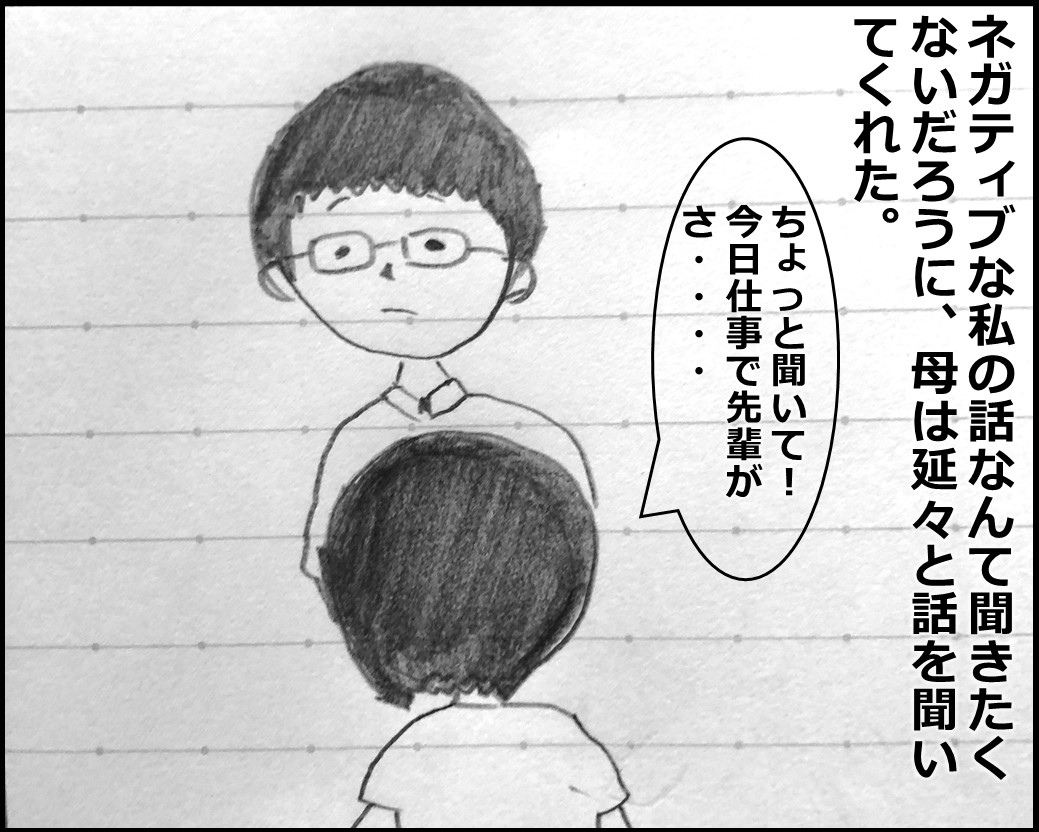 ネガティブな私の話なんて聞きたく
ないだろうに、母は延々と話を聞い
てくれた。
ちょっと聞いて！
今日仕事で先輩が
さ・・・・